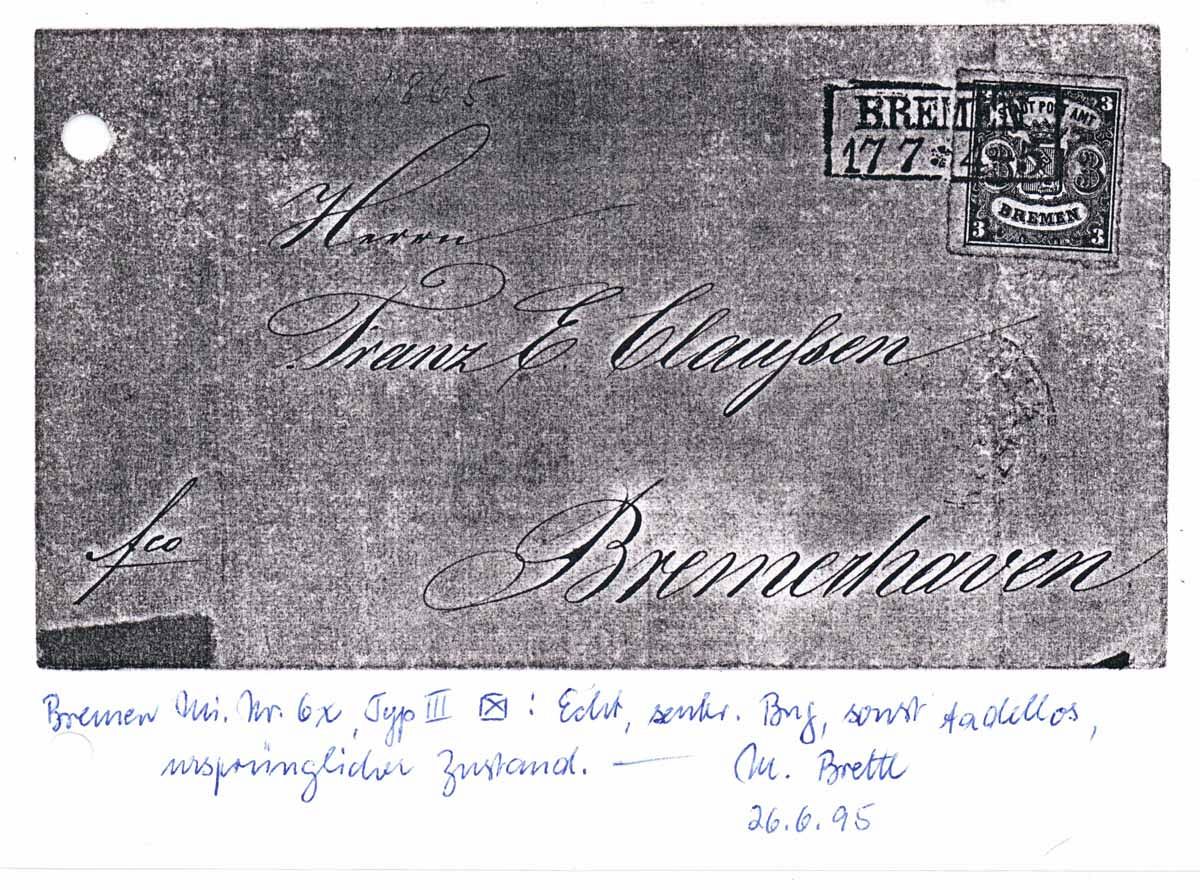 1865
BREMEN
17 7 * 4 - 5
STADT POST AMT
3 3
3 3
BREMEN
3 3
Herrn
Franz E. Claußen
fco
Bremerhaven
Bremen Mi. Nr. 6x, Typ III ⊠: Echt, senkr. Bug, sonst tadellos,
ursprünglicher Zustand. — M. Brettl
26.6.95